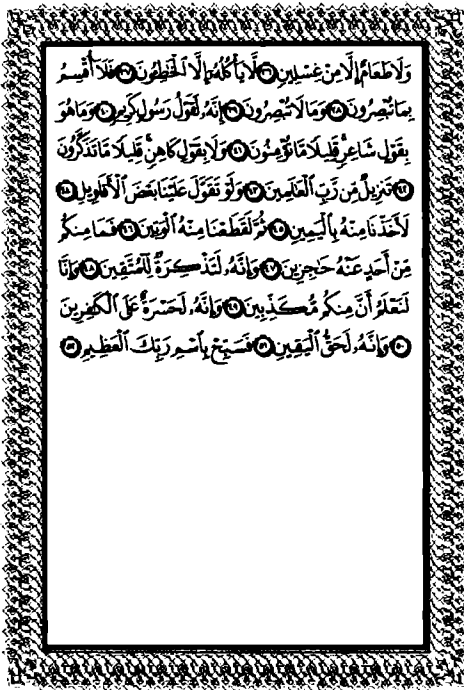 وَلَا طَعَامٌ إِلَّا مِنْ غِسْلِينٍ ٣٦ لَّا يَأْكُلُهُ إِلَّا الْخَاطِئُونَ ٣٧ فَلَا أُقْسِمُ
بِمَا تُبْصِرُونَ ٣٨ وَمَا لَا تُبْصِرُونَ ٣٩ إِنَّهُ لَقَوْلُ رَسُولٍ كَرِيمٍ ٤٠ وَمَا هُوَ
بِقَوْلِ شَاعِرٍ قَلِيلًا مَا تُؤْمِنُونَ ٤١ وَلَا بِقَوْلِ كَاهِنٍ قَلِيلًا مَا تَذَكَّرُونَ
٤٢ تَنزِيلٌ مِّن رَّبِّ الْعَالَمِينَ ٤٣ وَلَوْ تَقَوَّلَ عَلَيْنَا بَعْضَ الْأَقَاوِيلِ ٤٤
لَأَخَذْنَا مِنْهُ بِالْيَمِينِ ٤٥ ثُمَّ لَقَطَعْنَا مِنْهُ الْوَتِينَ ٤٦ فَمَا مِنكُم
مِّنْ أَحَدٍ عَنْهُ حَاجِزِينَ ٤٧ وَإِنَّهُ لَتَذْكِرَةٌ لِّلْمُتَّقِينَ ٤٨ وَإِنَّا
لَنَعْلَمُ أَنَّ مِنكُم مُّكَذِّبِينَ ٤٩ وَإِنَّهُ لَحَسْرَةٌ عَلَى الْكَافِرِينَ
٥٠ وَإِنَّهُ لَحَقُّ الْيَقِينِ ٥١ فَسَبِّحْ بِاسْمِ رَبِّكَ الْعَظِيمِ ٥٢